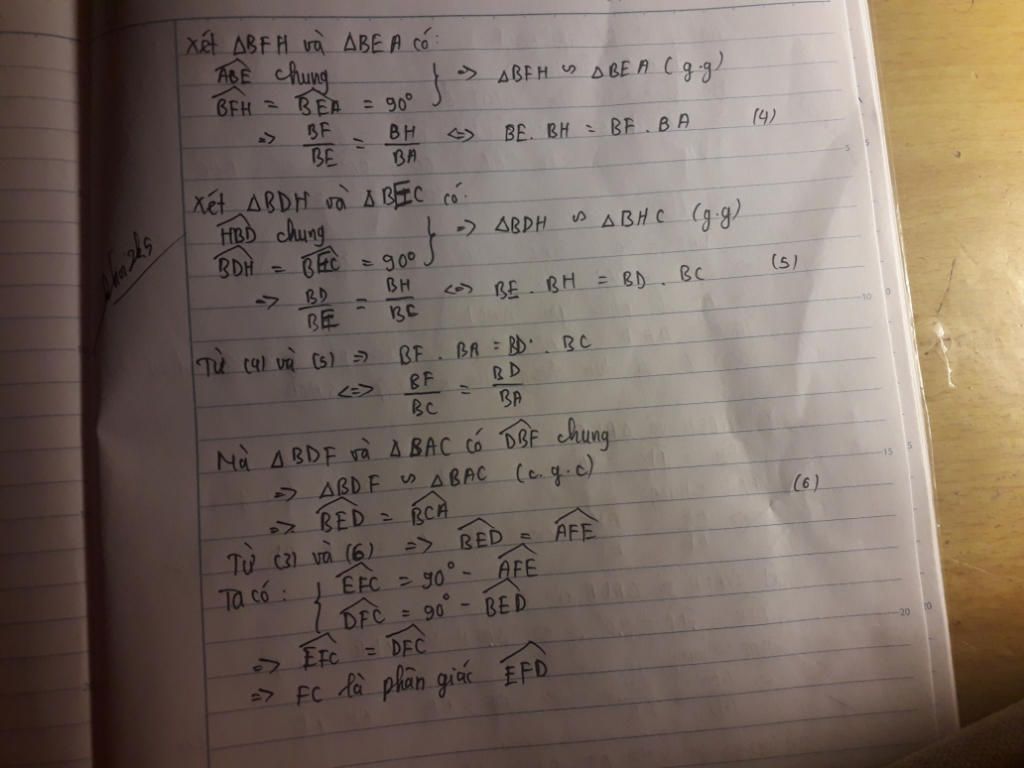 Xét ΔBFH và ΔBEA có:
ABE chung
BFH = BEA = 90° } => ΔBFH ∽ ΔBEA (g.g)
=> BF/BE = BH/BA <=> BE. BH = BF. BA (4)
Xét ΔBDH và ΔBEC có:
HBD chung
BDH = BEC = 90° } => ΔBDH ∽ ΔBHC (g.g)
=> BD/BE = BH/BC <=> BE. BH = BD. BC (5)
Từ (4) và (5) => BF. BA = BD. BC
<=> BF/BC = BD/BA
Mà ΔBDF và ΔBAC có DBF chung
=> ΔBDF ∽ ΔBAC (c.g.c)
=> BED = BCA (6)
Từ (3) và (6) => BED = AFE
Ta có: { EFC = 90° - AFE
DFC = 90° - BED
=> EFC = DFC
=> FC là phân giác EFD
5
10
15
20